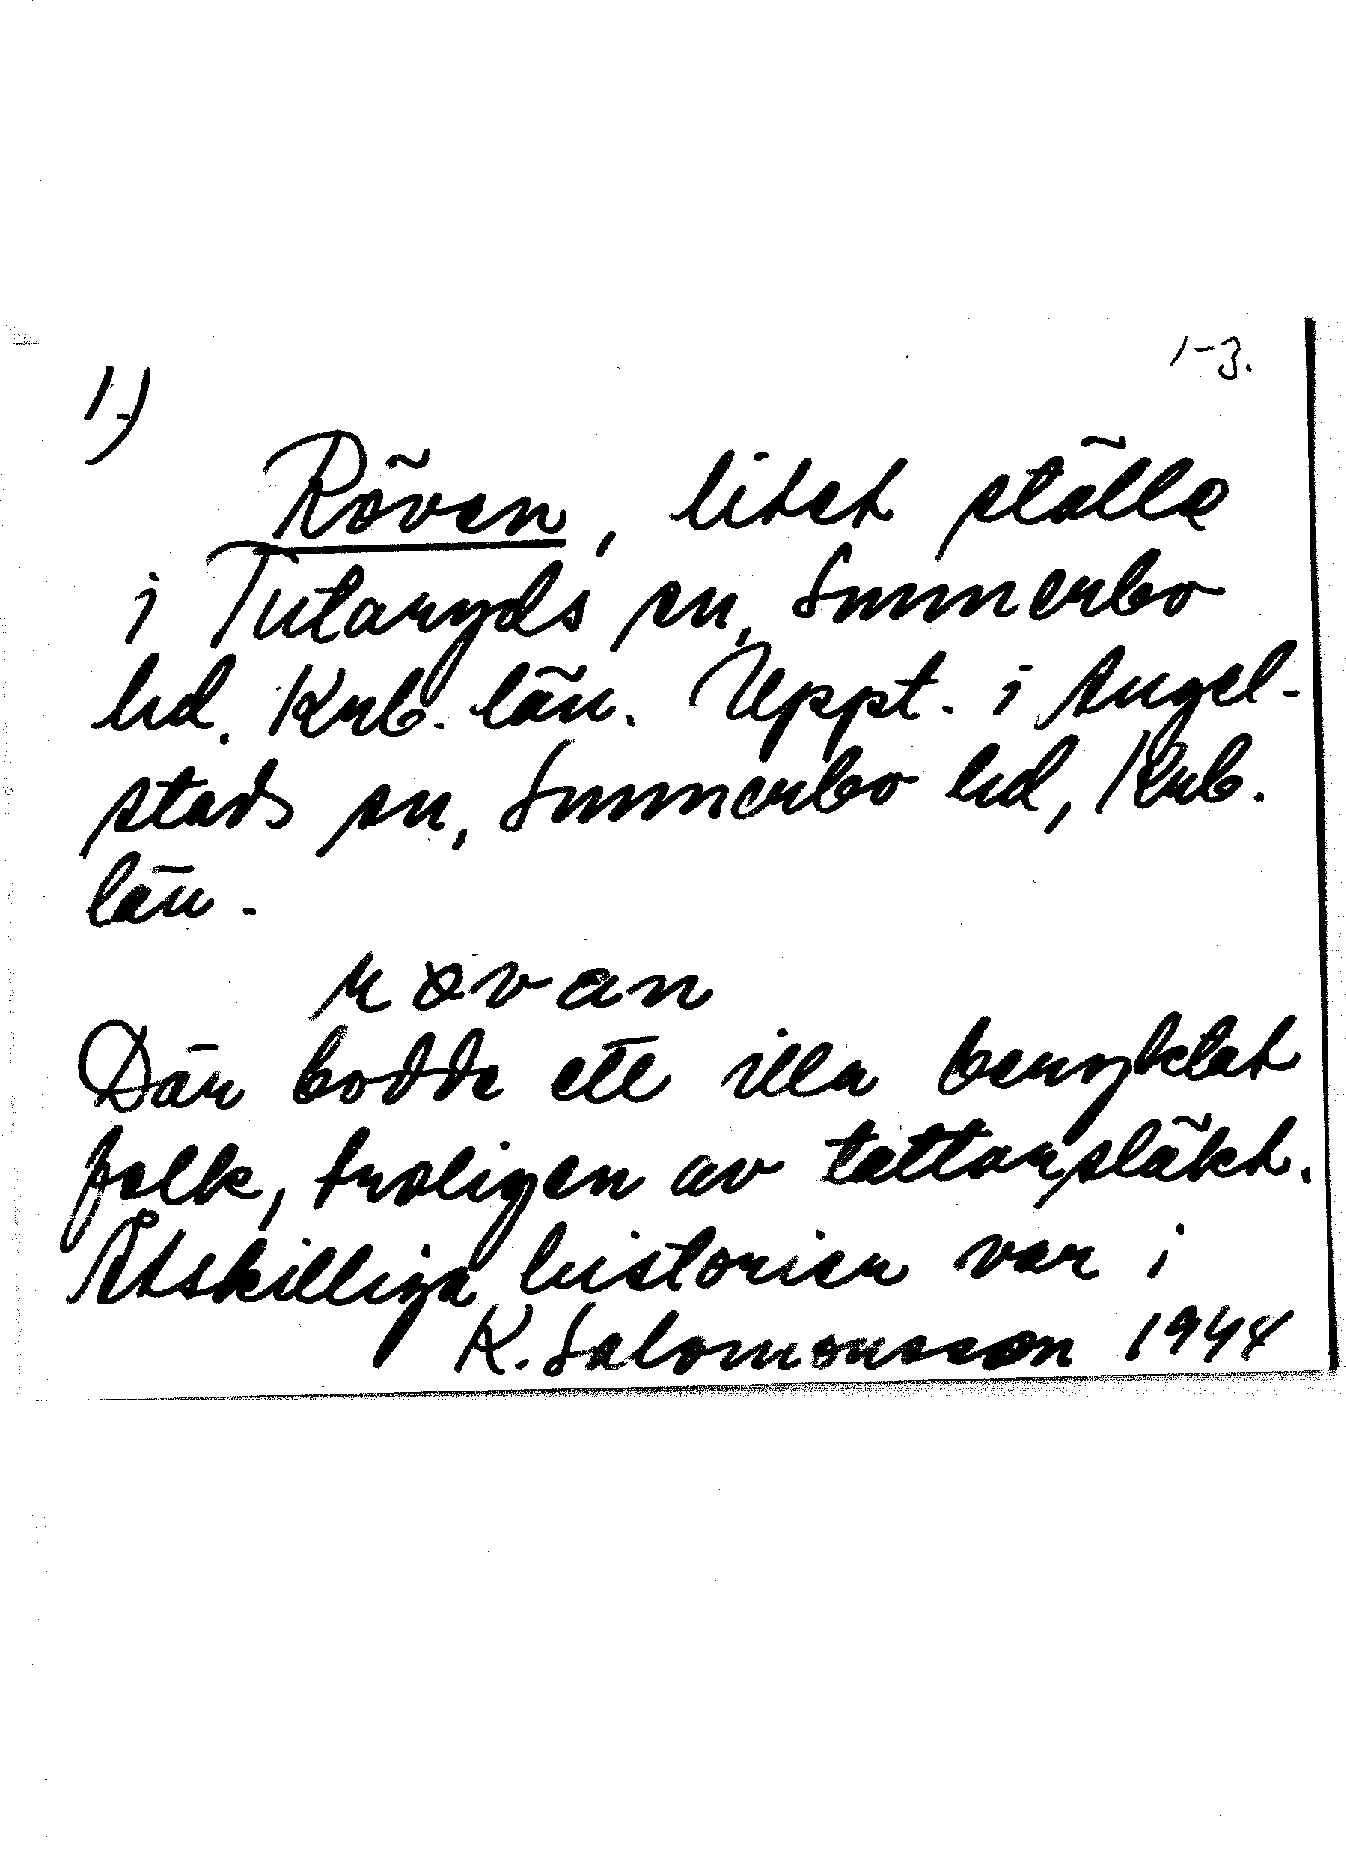 1-3.
1.)
Röven, litet ställe
i Tutaryds sn, Sunnerbo
hd. Krb. län. Uppt. i Angel-
stads sn, Sunnerbo hd, Krb.
län.
røvan
Där bodde ett illa beryktat
folk, troligen av tattarsläkt.
Åtskilliga historier var i
K. Salomonsson 1944